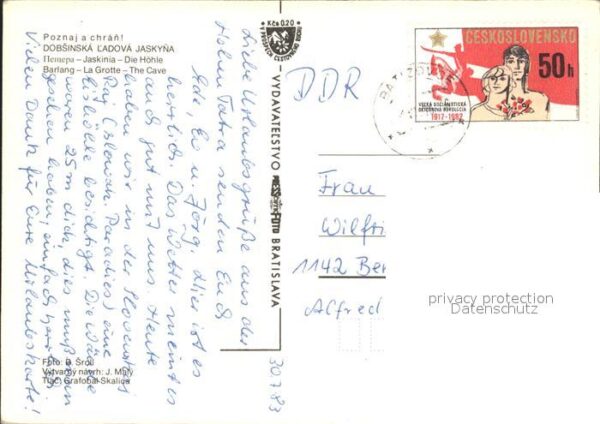 Poznaj a chráň!
DOBŠINSKÁ ĽADOVÁ JASKYŇA
Пещера – Jaskinia – Die Höhle
Barlang – La Grotte – The Cave
Liebe Urlaubsgrüße aus der
Hohen Tatra senden Euch
Ed. Ev u. Jörg. Hier ist es
herrlich. Das Wetter meint es
auch gut mit uns. Heute
haben wir in der Slovenski
Raj (slowak. Paradies) eine
Eishöhle besichtigt. Die Wände
waren 25m dick, dies muß man
gesehen haben, einfach
Vielen Dank für Eure Urlaubskarte!
Foto: B. Šroll
Výtvarný návrh: J. Malý
Tlač: Grafobal Skalica
Kčs 0,20
V PROSPECH CESTOVNÉHO RUCHU
VYDAVATEĽSTVO
BRATISLAVA
30.7.83
DDR
ČESKOSLOVENSKO
50h
VEĽKÁ SOCIALISTICKÁ
OKTÓBROVÁ REVOLÚCIA
1917-1982
Frau
Wilfri
1142 Ber
Alfred
privacy protection
Datenschutz